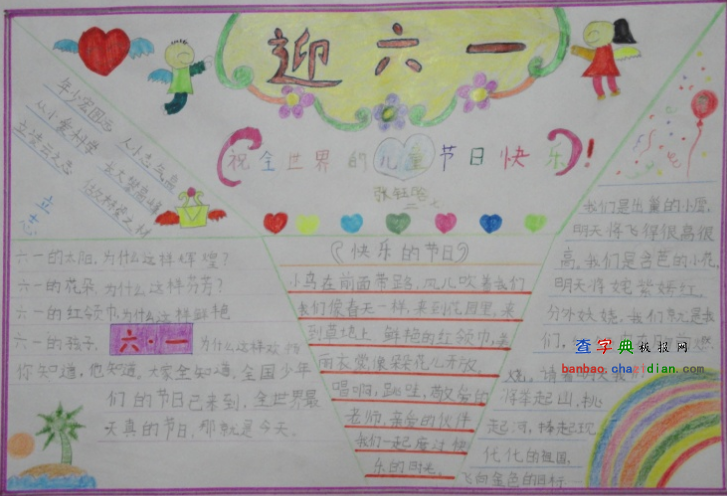 迎六一
祝全世界的儿童节日快乐!
年少宏图远
人小志气高
从小爱科学
立凌云之志
立志
六一的太阳,为什么这样辉煌?
六一的花朵,为什么这样芬芳?
六一的红领巾为什么这样鲜艳
六一的孩子,六·一为什么这样欢
你知道,他知道,大家全知道,全国少年
们的节日已来到,全世界最
天真的节日,那就是今天.
快乐的节日
小鸟在前面带路,风儿吹着我们
我们像春天一样,来到花园里,来
到草地上.鲜艳的红领巾,美
丽衣裳像朵花儿开放.
唱啊,跳哇,敬爱的
老师,亲爱的伙伴
我们一起度过快
乐的时光.
我们是出巢的小鹰,
明天将飞得很高很
高,我们是含苞的小花,
明天将姹紫嫣红,
分外妖娆,我们就是我
们,
燃
将举起山,挑
起河,捧起现
代化的祖国,
飞向金色的目标
查字典板报网
banbao.chazidian.com